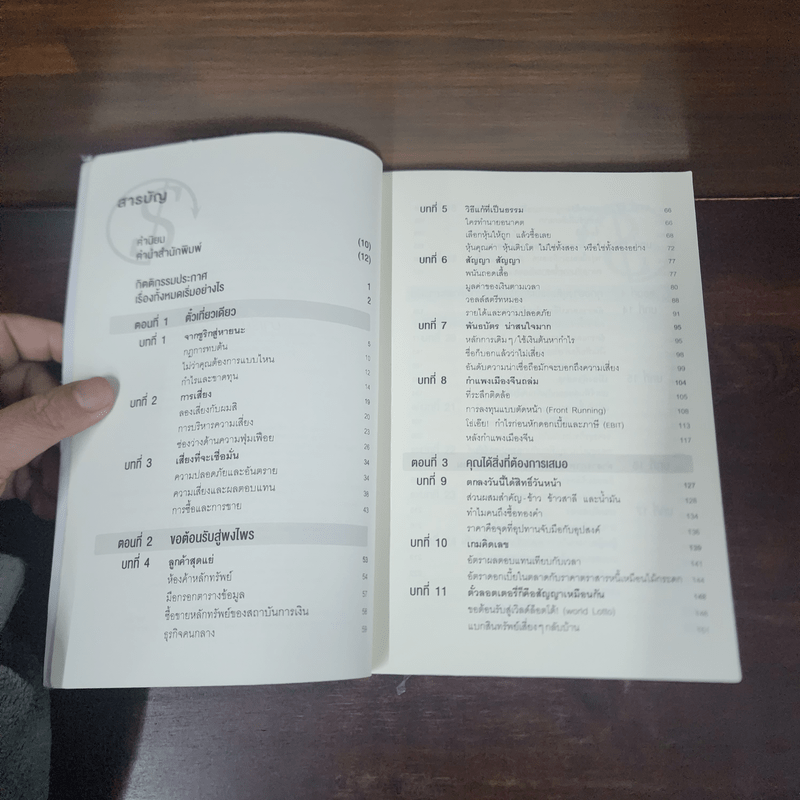 สารบัญ
คำนิยม (10)
คำนำสำนักพิมพ์ (12)
กิตติกรรมประกาศ 1
เรื่องทั้งหมดเริ่มอย่างไร 2
ตอนที่ 1 ตั๋วเที่ยวเดียว
บทที่ 1 จากซูริกสู่หายนะ 5
กฎการทบต้น 10
ไม่ว่าคุณต้องการแบบไหน 12
กำไรและขาดทุน 14
บทที่ 2 การเสี่ยง 19
ลองเสี่ยงกับผมสิ 20
การบริหารความเสี่ยง 23
ช่องว่างด้านความฟุ่มเฟือย 26
บทที่ 3 เสี่ยงที่จะเชื่อมั่น 34
ความปลอดภัยและอันตราย 34
ความเสี่ยงและผลตอบแทน 38
การซื้อและการขาย 43
ตอนที่ 2 ขอต้อนรับสู่พงไพร
บทที่ 4 ลูกค้าสุดแย่ 53
ห้องค้าหลักทรัพย์ 54
มือกรอกตารางข้อมูล 57
ซื้อขายหลักทรัพย์ของสถาบันการเงิน 58
ธุรกิจคนกลาง 59
บทที่ 5 วิธีแก้ที่เป็นธรรม 66
ใครทำนายอนาคต 66
เลือกหุ้นให้ถูก แล้วซื้อเลย 68
หุ้นคุณค่า หุ้นเติบโต ไม่ใช่ทั้งสอง หรือใช่ทั้งสองอย่าง 72
บทที่ 6 สัญญา สัญญา 77
พนันถอดเสื้อ 77
มูลค่าของเงินตามเวลา 80
วอลล์สตรีทหมอง 88
รายได้และความปลอดภัย 91
บทที่ 7 พันธบัตร น่าสนใจมาก 95
หลักการเดิมๆ/ใช้เงินต้นหากำไร 95
ชื่อก็บอกแล้วว่าไม่เสี่ยง 97
อันดับความน่าเชื่อถือมักจะบอกถึงความเสี่ยง 99
บทที่ 8 กำแพงเมืองจีนถล่ม 104
ที่ระลึกติดล้อ 105
การลงทุนแบบตัดหน้า (Front Running) 108
โธ่เอ๊ย! กำไรก่อนหักดอกเบี้ยและภาษี (EBIT) 113
หลังกำแพงเมืองจีน 117
ตอนที่ 3 คุณได้สิ่งที่ต้องการเสมอ
บทที่ 9 ตกลงวันนี้ได้สิทธิ์วันหน้า 127
ส่วนผสมสำคัญ-ข้าว ข้าวสาลี และน้ำมัน 128
ทำไมคนถึงซื้อทองคำ 134
ราคาคือจุดที่อุปทานจับมือกับอุปสงค์ 135
บทที่ 10 เกมคิดเลข 139
อัตราผลตอบแทนเทียบกับเวลา 141
อัตราดอกเบี้ยในตลาดกับราคาตราสารหนี้เหมือนไม้กระดก 144
บทที่ 11 ตั๋วลอตเตอรี่ก็คือสัญญาเหมือนกัน 148
ขอต้อนรับสู่เวิลด์ล็อตโต้! (World Lotto) 148
แบกสินทรัพย์เสี่ยงๆ กลับบ้าน 151